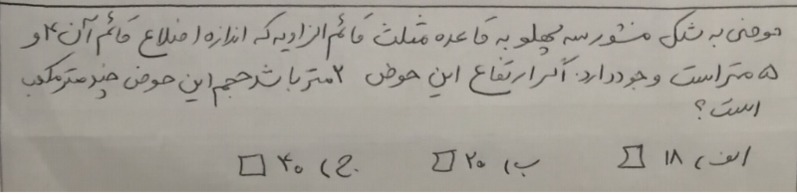 حوضی به شکل منشور سه پهلو به قاعده مثلث قائم الزاویه که اندازه اضلاع قائم آن ۴ و
۵ متر است وجود دارد. اگر ارتفاع این حوض ۲ متر باشد حجم این حوض چند متر مکعب
است؟
الف) ۱۸ □ ب) ۲۰ □ ج) ۴۰ □